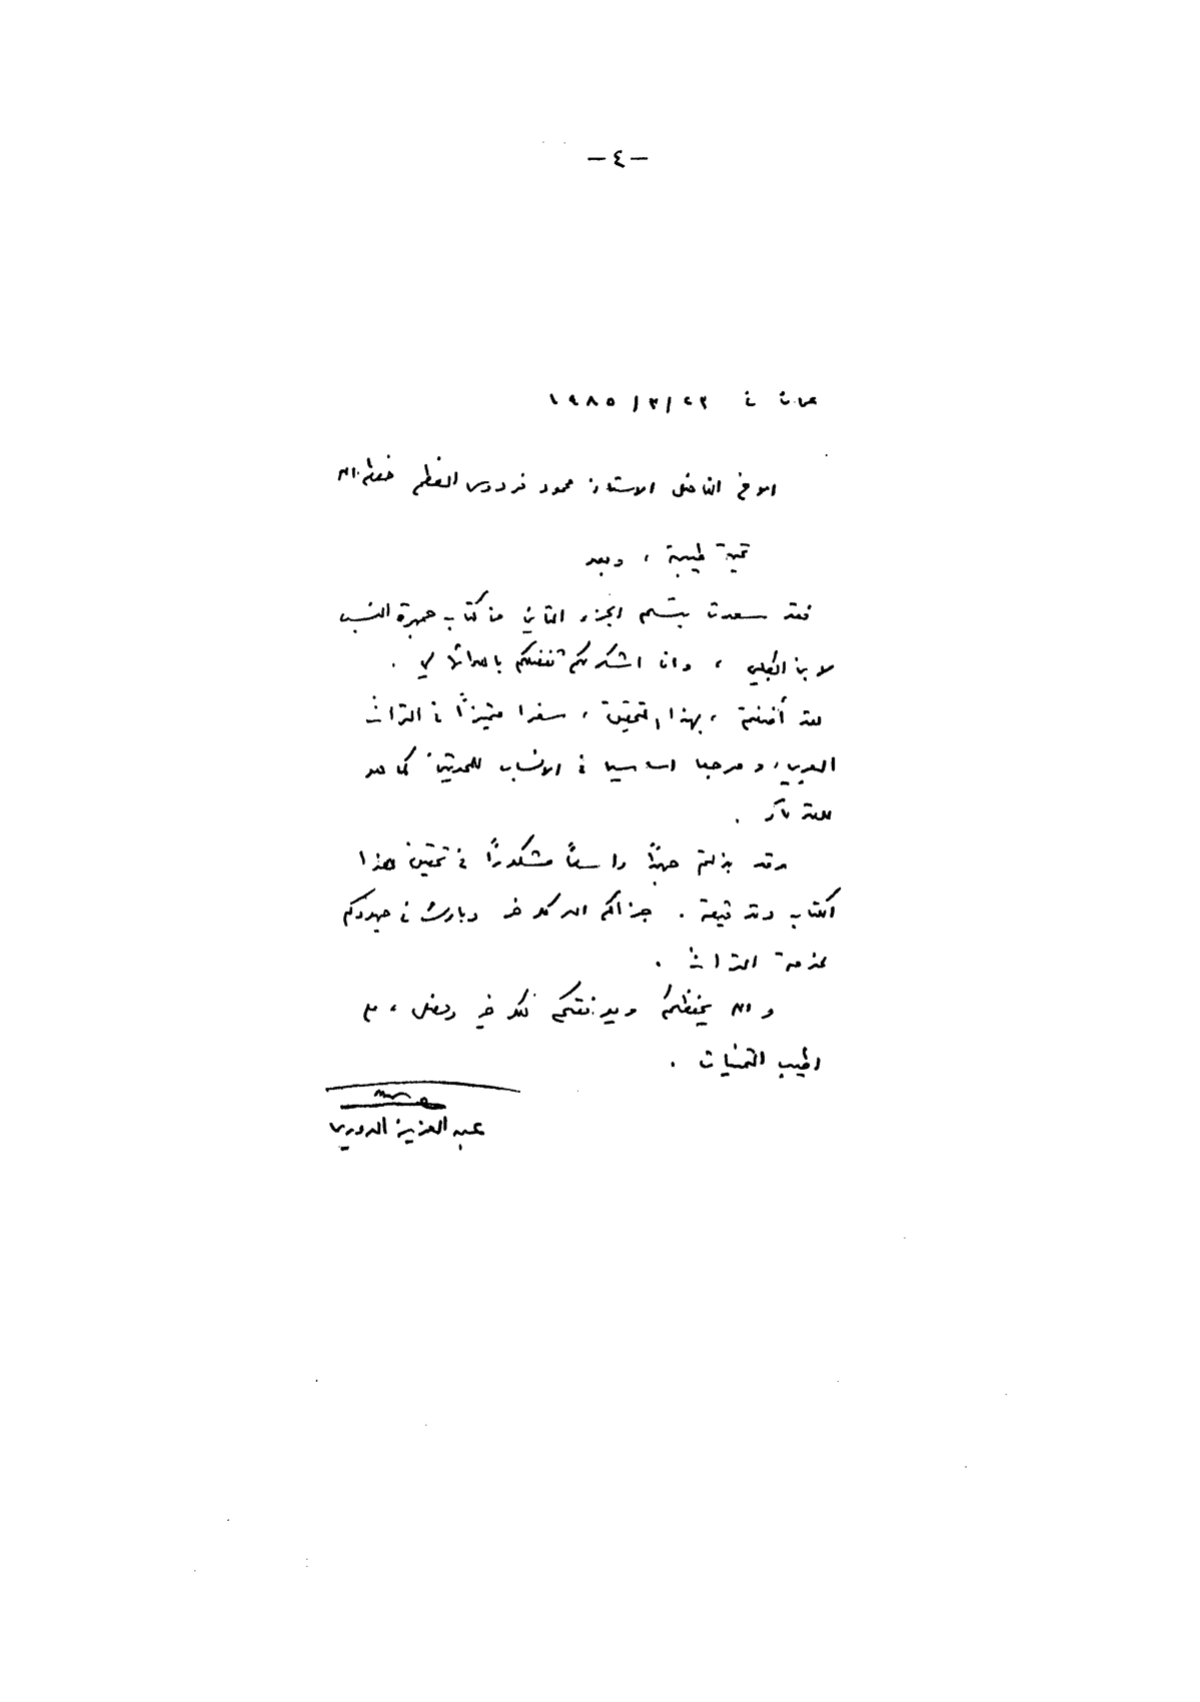 -٤-
عمان في ٢٣/٣/١٩٨٥
الاخ الفاضل الاستاذ محمود فردوس العظم حفظه الله
تحية طيبة ، وبعد
فقد سعدت بتسلم الجزء الثاني من كتاب جمهرة النسب
لابن الكلبي ، وانا اشكر لكم تفضلكم باهدائها لي .
لقد أضفتم ، بهذا التحقيق ، سفرا متميزًا في التراث
العربي ، ومرجعا اساسيا في الانساب للمحدثين كما هو
وقد بذلتم جهدًا واسعًا مشكورًا في تحقيق هذا
الكتاب وتدقيقه . جزاكم الله كل خير وبارك في جهودكم
لخدمة التراث .
والله يحفظكم ويوفقكم لكل خير وفضل ، مع
اطيب التمنيات .
عبد العزيز الدوري